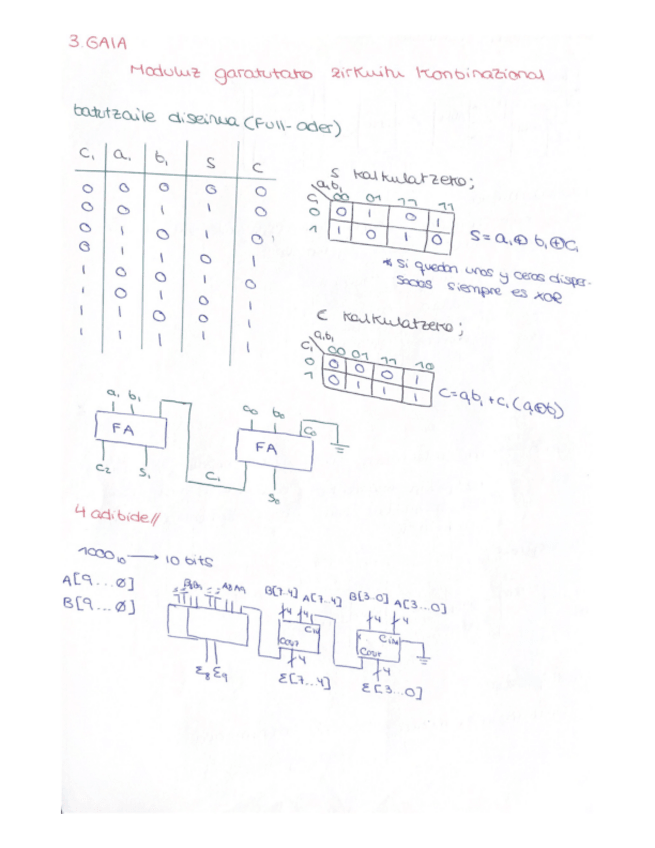 3. GAIA
Moduluz garatutako zirkuitu konbinazional
batutzaile diseinua (Full-ader)
C₁ a₁ b₁ S C
0 0 0 0 0
0 0 1 1 0
0 1 0 1 0
0 1 1 0 1
1 0 0 1 0
1 0 1 0 1
1 1 0 0 1
1 1 1 1 1
S kalkulatzeko;
a₁b₁
C₁ 00 01 11 11
0 0 1 0 1
1 1 0 1 0
S = a₁ ⊕ b₁ ⊕ C₁
* Si quedan unos y ceros disper-
sados siempre es XOR
C kalkulatzeko;
a₁b₁
C₁ 00 01 11 10
0 0 0 0 1
1 0 1 1 1
C = a₁b₁ + C₁ (a⊕b)
a₁ b₁
FA
C₂ S₁
C₁
b₀ C₀
FA
S₀
4 adibide //
1000₁₀ → 10 bits
A[9...0]
B[9...0]
B[7..4] A[7..4]
4 4
Cin
Cout
4
Σ[7...4]
B[3..0] A[3...0]
4 4
Cin
Cout
4
Σ[3...0]
Σ₈ Σ₉